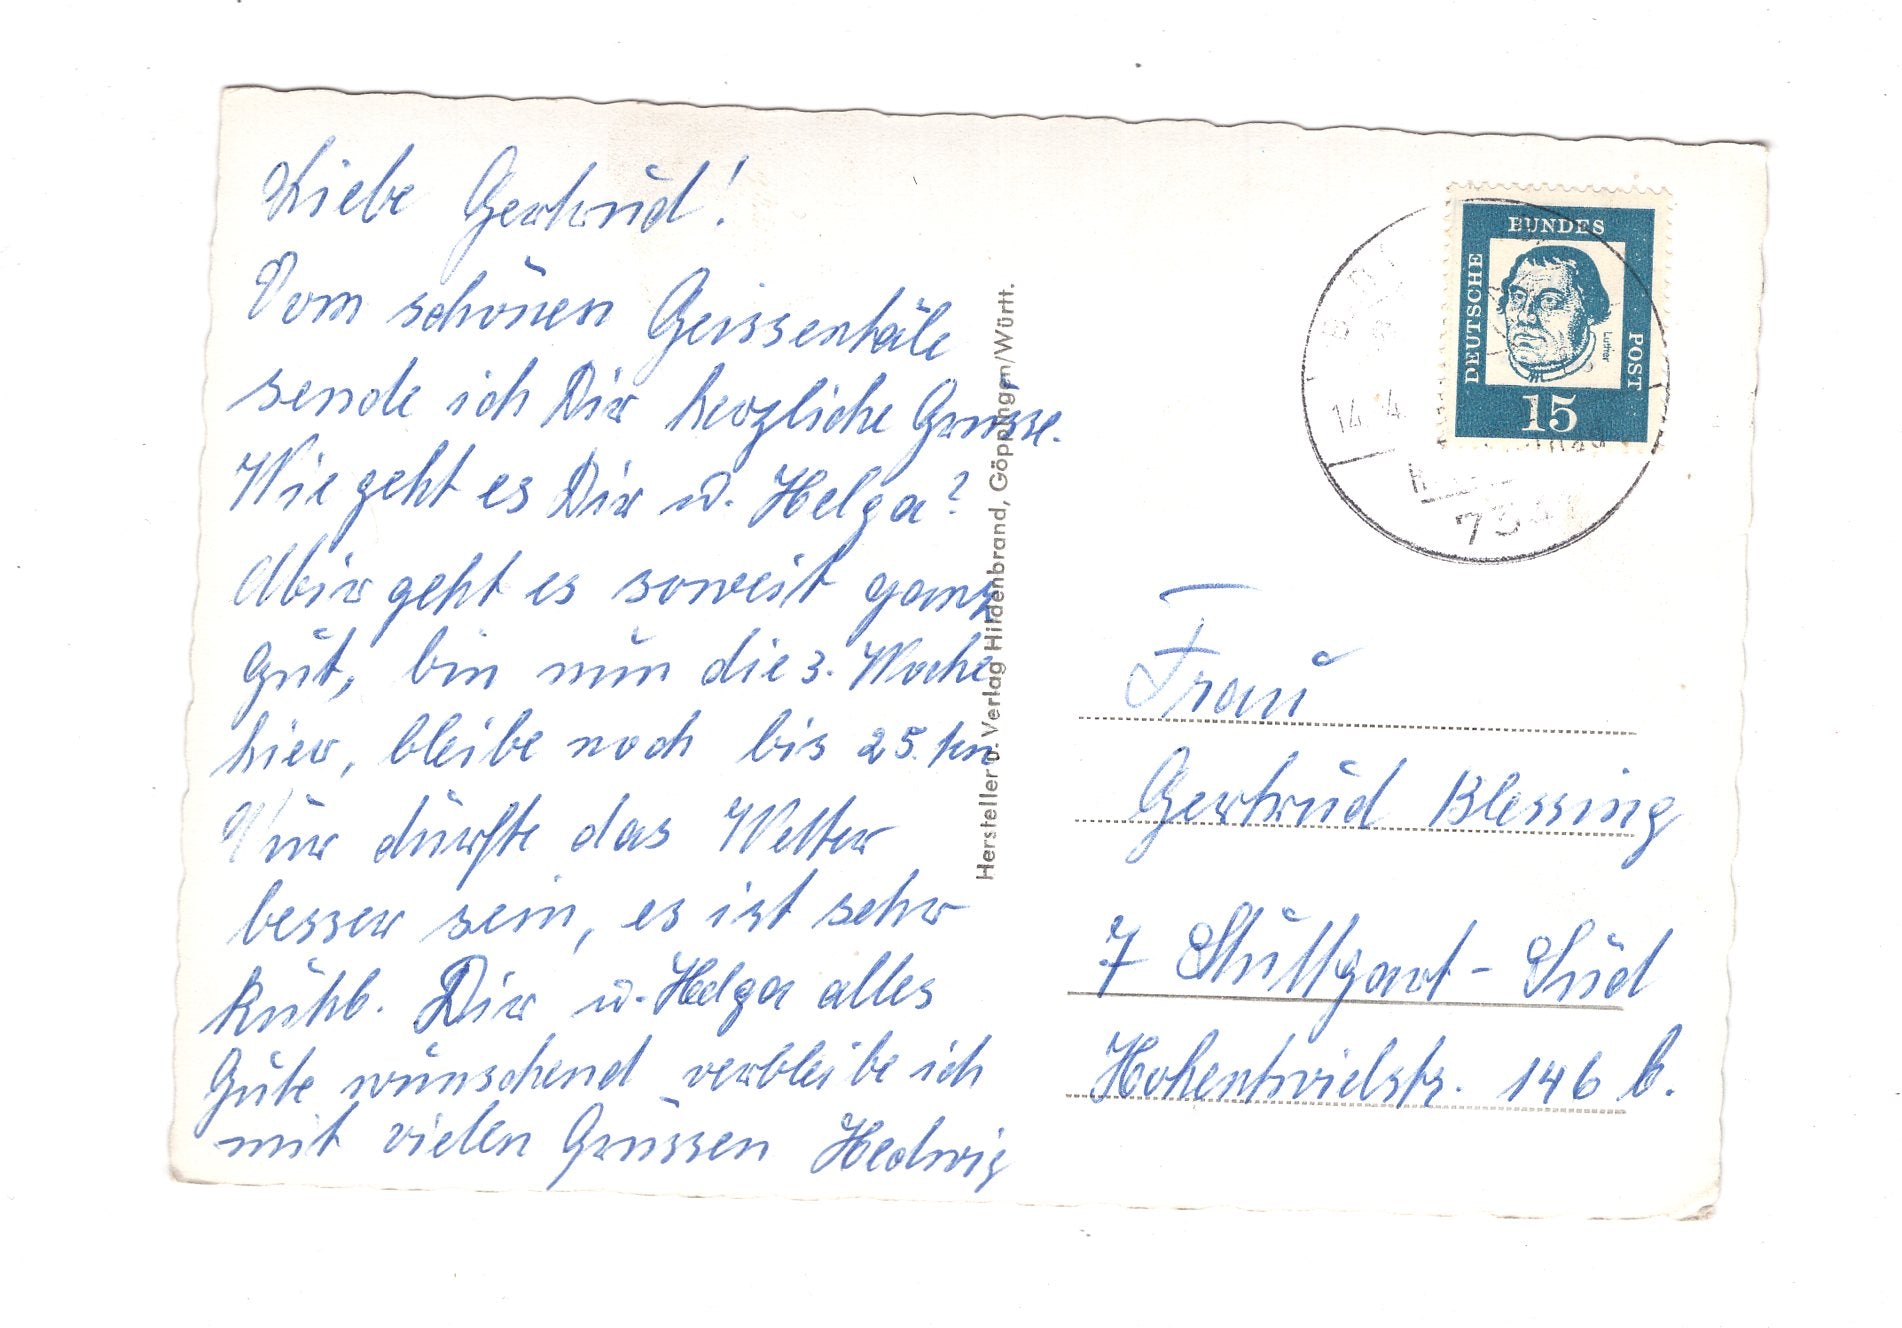 Liebe Gertrud!
Vom schönen Geissentäle
sende ich Dir herzliche Grüsse.
Wie geht es Dir u. Helga?
Mir geht es soweit ganz
gut, bin nun die 3. Woche
hier, bleibe noch bis 25. hn
Nur dürfte das Wetter
besser sein, es ist sehr
kühl. Dir u. Helga alles
Gute wünschend verbleibe ich
mit vielen Grüssen Hedwig
Hersteller u. Verlag Hildenbrand, Göppingen/Württ.
DEUTSCHE BUNDES POST
Luther
15
14. 4
Frau
Gertrud Blessing
7 Stuttgart-Süd
Hohentwielstr. 146 b.